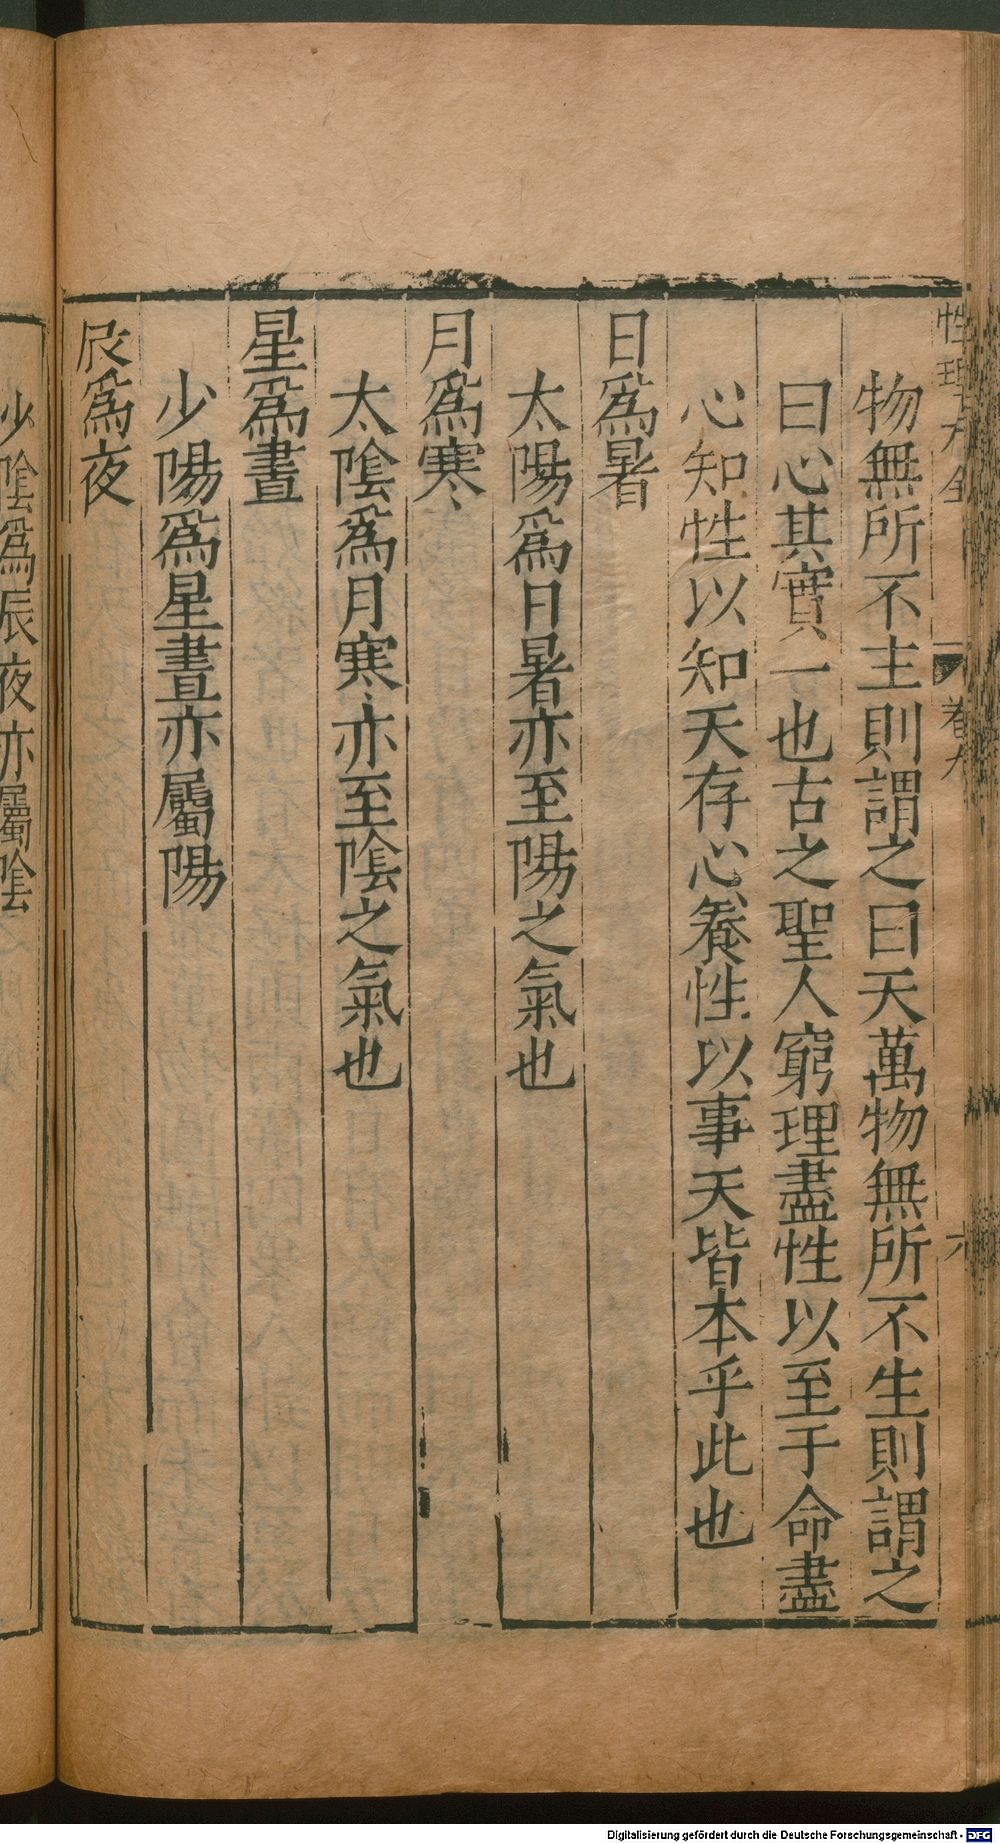 性理大全 卷九 六
物無所不主則謂之曰天萬物無所不生則謂之
曰心其實一也古之聖人窮理盡性以至于命盡
心知性以知天存心養性以事天皆本乎此也
日爲暑
太陽爲日暑亦至陽之氣也
月爲寒
太陰爲月寒亦至陰之氣也
星爲晝
少陽爲星晝亦屬陽
辰爲夜
少陰爲辰夜亦屬陰
Digitalisierung gefördert durch die Deutsche Forschungsgemeinschaft - DFG